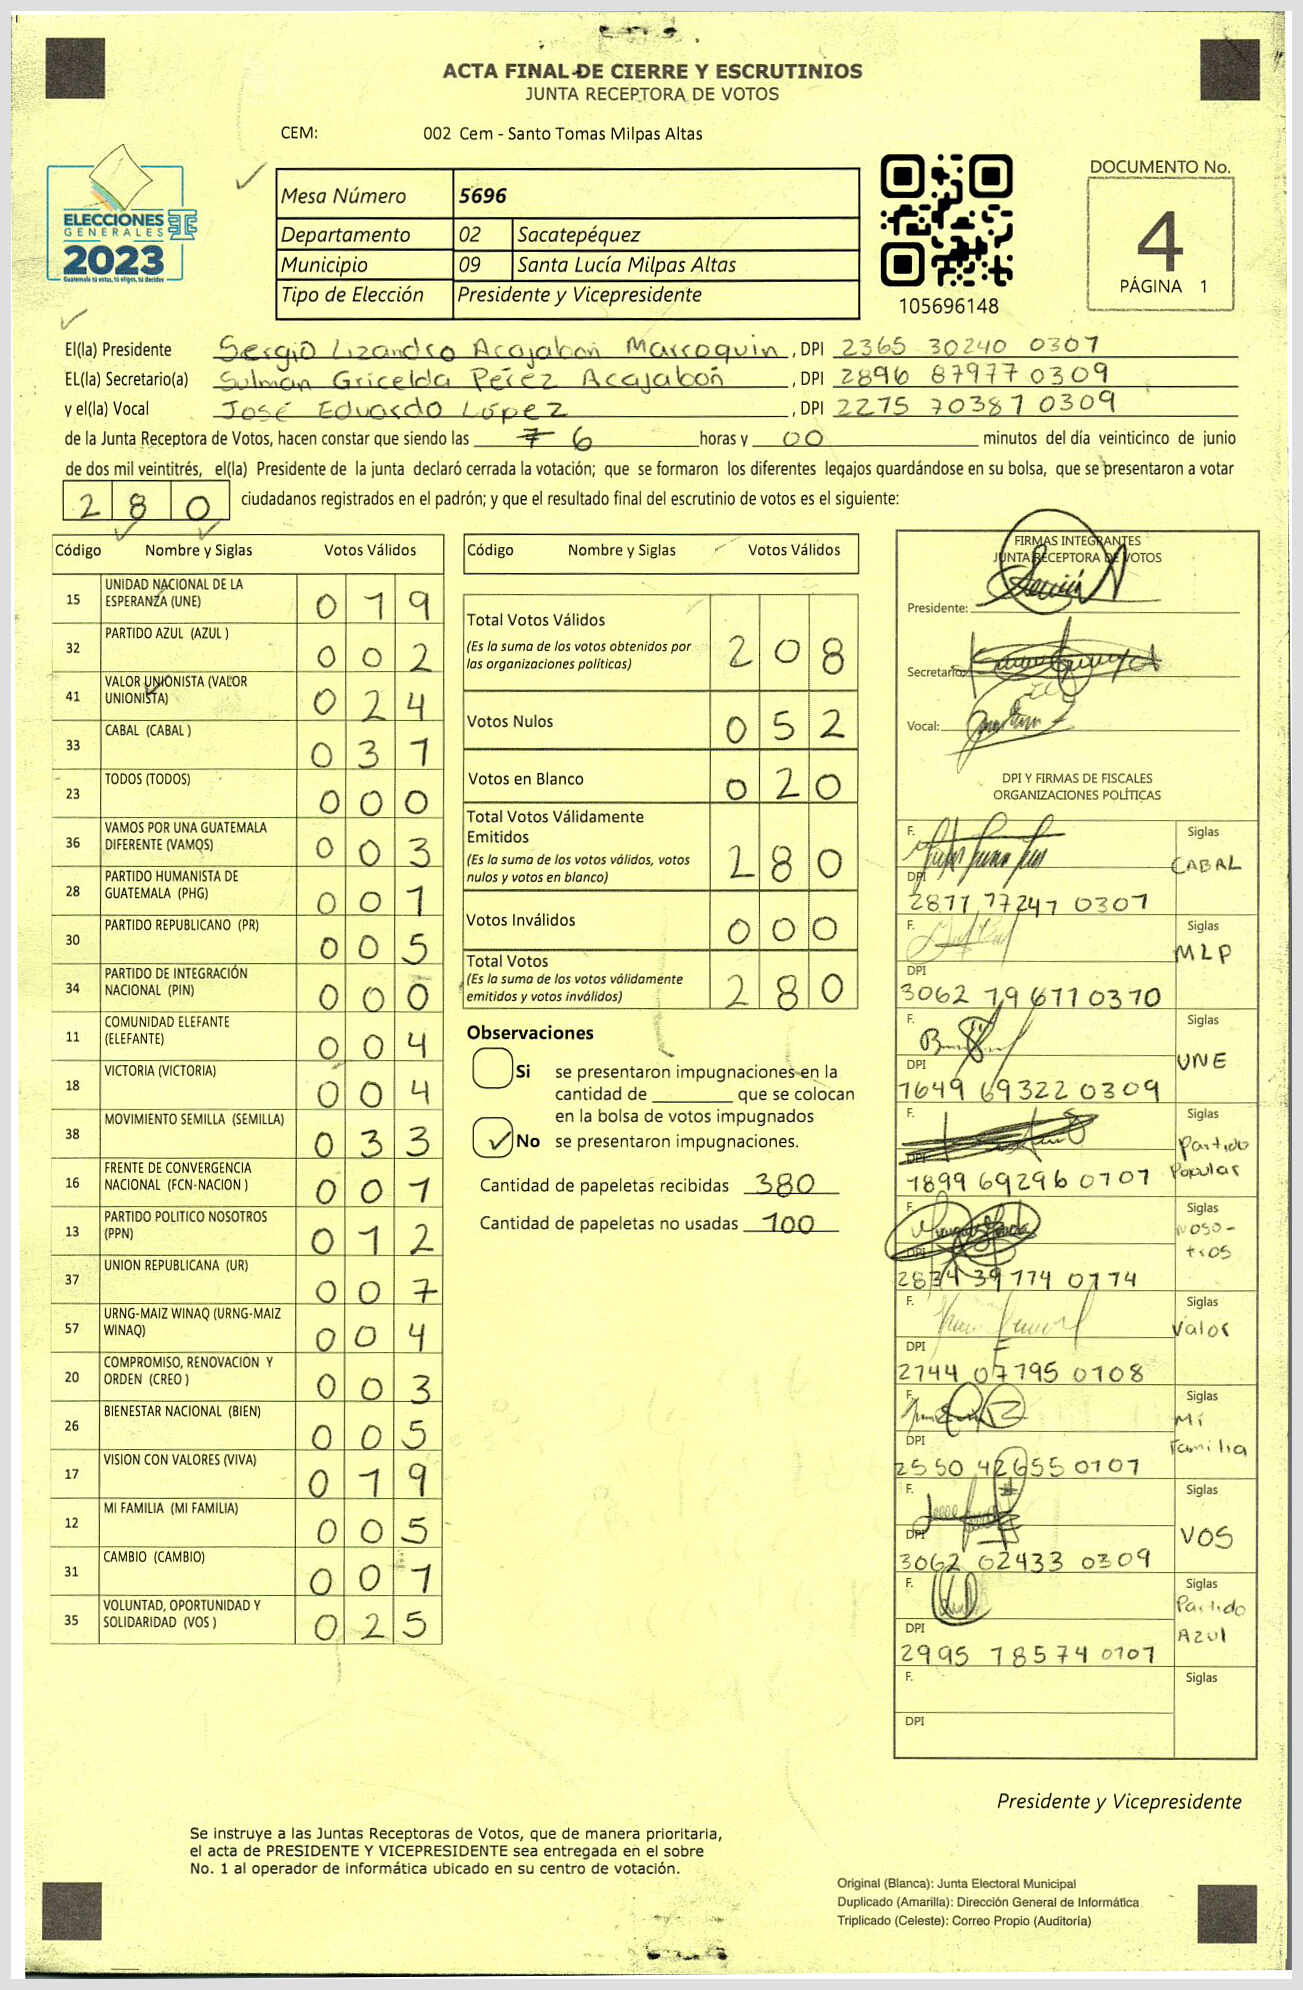 ACTA FINAL DE CIERRE Y ESCRUTINIOS
JUNTA RECEPTORA DE VOTOS
CEM: 002 Cem - Santo Tomas Milpas Altas
ELECCIONES
GENERALES
2023
Guatemala tú votas, tú eliges, tú decides
Mesa Número 5696
Departamento 02 Sacatepéquez
Municipio 09 Santa Lucía Milpas Altas
Tipo de Elección Presidente y Vicepresidente
105696148
DOCUMENTO No.
4
PÁGINA 1
El(la) Presidente Sergio Lizandro Acajabon Marroquin, DPI 2365 30240 0307
EL(la) Secretario(a) Sulman Gricelda Pérez Acajabón, DPI 2896 87977 0309
y el(la) Vocal José Eduardo López, DPI 2275 70387 0309
de la Junta Receptora de Votos, hacen constar que siendo las 6 horas y 00 minutos del día veinticinco de junio
de dos mil veintitrés, el(la) Presidente de la junta declaró cerrada la votación; que se formaron los diferentes legajos guardándose en su bolsa, que se presentaron a votar
280 ciudadanos registrados en el padrón; y que el resultado final del escrutinio de votos es el siguiente:
Código Nombre y Siglas Votos Válidos
15 UNIDAD NACIONAL DE LA ESPERANZA (UNE) 019
32 PARTIDO AZUL (AZUL ) 002
41 VALOR UNIONISTA (VALOR UNIONISTA) 024
33 CABAL (CABAL ) 031
23 TODOS (TODOS) 000
36 VAMOS POR UNA GUATEMALA DIFERENTE (VAMOS) 003
28 PARTIDO HUMANISTA DE GUATEMALA (PHG) 001
30 PARTIDO REPUBLICANO (PR) 005
34 PARTIDO DE INTEGRACIÓN NACIONAL (PIN) 000
11 COMUNIDAD ELEFANTE (ELEFANTE) 004
18 VICTORIA (VICTORIA) 004
38 MOVIMIENTO SEMILLA (SEMILLA) 033
16 FRENTE DE CONVERGENCIA NACIONAL (FCN-NACION ) 001
13 PARTIDO POLITICO NOSOTROS (PPN) 012
37 UNION REPUBLICANA (UR) 007
57 URNG-MAIZ WINAQ (URNG-MAIZ WINAQ) 004
20 COMPROMISO, RENOVACION Y ORDEN (CREO ) 003
26 BIENESTAR NACIONAL (BIEN) 005
17 VISION CON VALORES (VIVA) 019
12 MI FAMILIA (MI FAMILIA) 005
31 CAMBIO (CAMBIO) 001
35 VOLUNTAD, OPORTUNIDAD Y SOLIDARIDAD (VOS ) 025
Código Nombre y Siglas Votos Válidos
Total Votos Válidos 208
(Es la suma de los votos obtenidos por las organizaciones políticas)
Votos Nulos 052
Votos en Blanco 020
Total Votos Válidamente Emitidos 280
(Es la suma de los votos válidos, votos nulos y votos en blanco)
Votos Inválidos 000
Total Votos 280
(Es la suma de los votos válidamente emitidos y votos inválidos)
Observaciones
Si se presentaron impugnaciones en la
cantidad de ________ que se colocan
en la bolsa de votos impugnados
No se presentaron impugnaciones.
Cantidad de papeletas recibidas 380
Cantidad de papeletas no usadas 100
FIRMAS INTEGRANTES
JUNTA RECEPTORA DE VOTOS
Presidente:
Secretario:
Vocal:
DPI Y FIRMAS DE FISCALES
ORGANIZACIONES POLÍTICAS
F. Siglas CABAL
DPI 2877 77247 0307
F. Siglas MLP
DPI 3062 79671 0370
F. Siglas UNE
DPI 1649 69322 0309
F. Siglas Partido Popular
DPI 1899 69296 0707
F. Siglas Nosotros
DPI 2834 39774 0774
F. Siglas Valor
DPI 2744 07795 0108
F. Siglas Mi Familia
DPI 2550 42655 0107
F. Siglas VOS
DPI 3062 02433 0309
F. Siglas Partido Azul
DPI 2995 78574 0107
F. Siglas
DPI
Presidente y Vicepresidente
Se instruye a las Juntas Receptoras de Votos, que de manera prioritaria,
el acta de PRESIDENTE Y VICEPRESIDENTE sea entregada en el sobre
No. 1 al operador de informática ubicado en su centro de votación.
Original (Blanca): Junta Electoral Municipal
Duplicado (Amarilla): Dirección General de Informática
Triplicado (Celeste): Correo Propio (Auditoría)